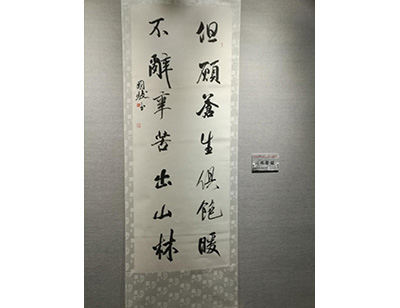 但願蒼生俱飽暖
不辭辛苦出山林